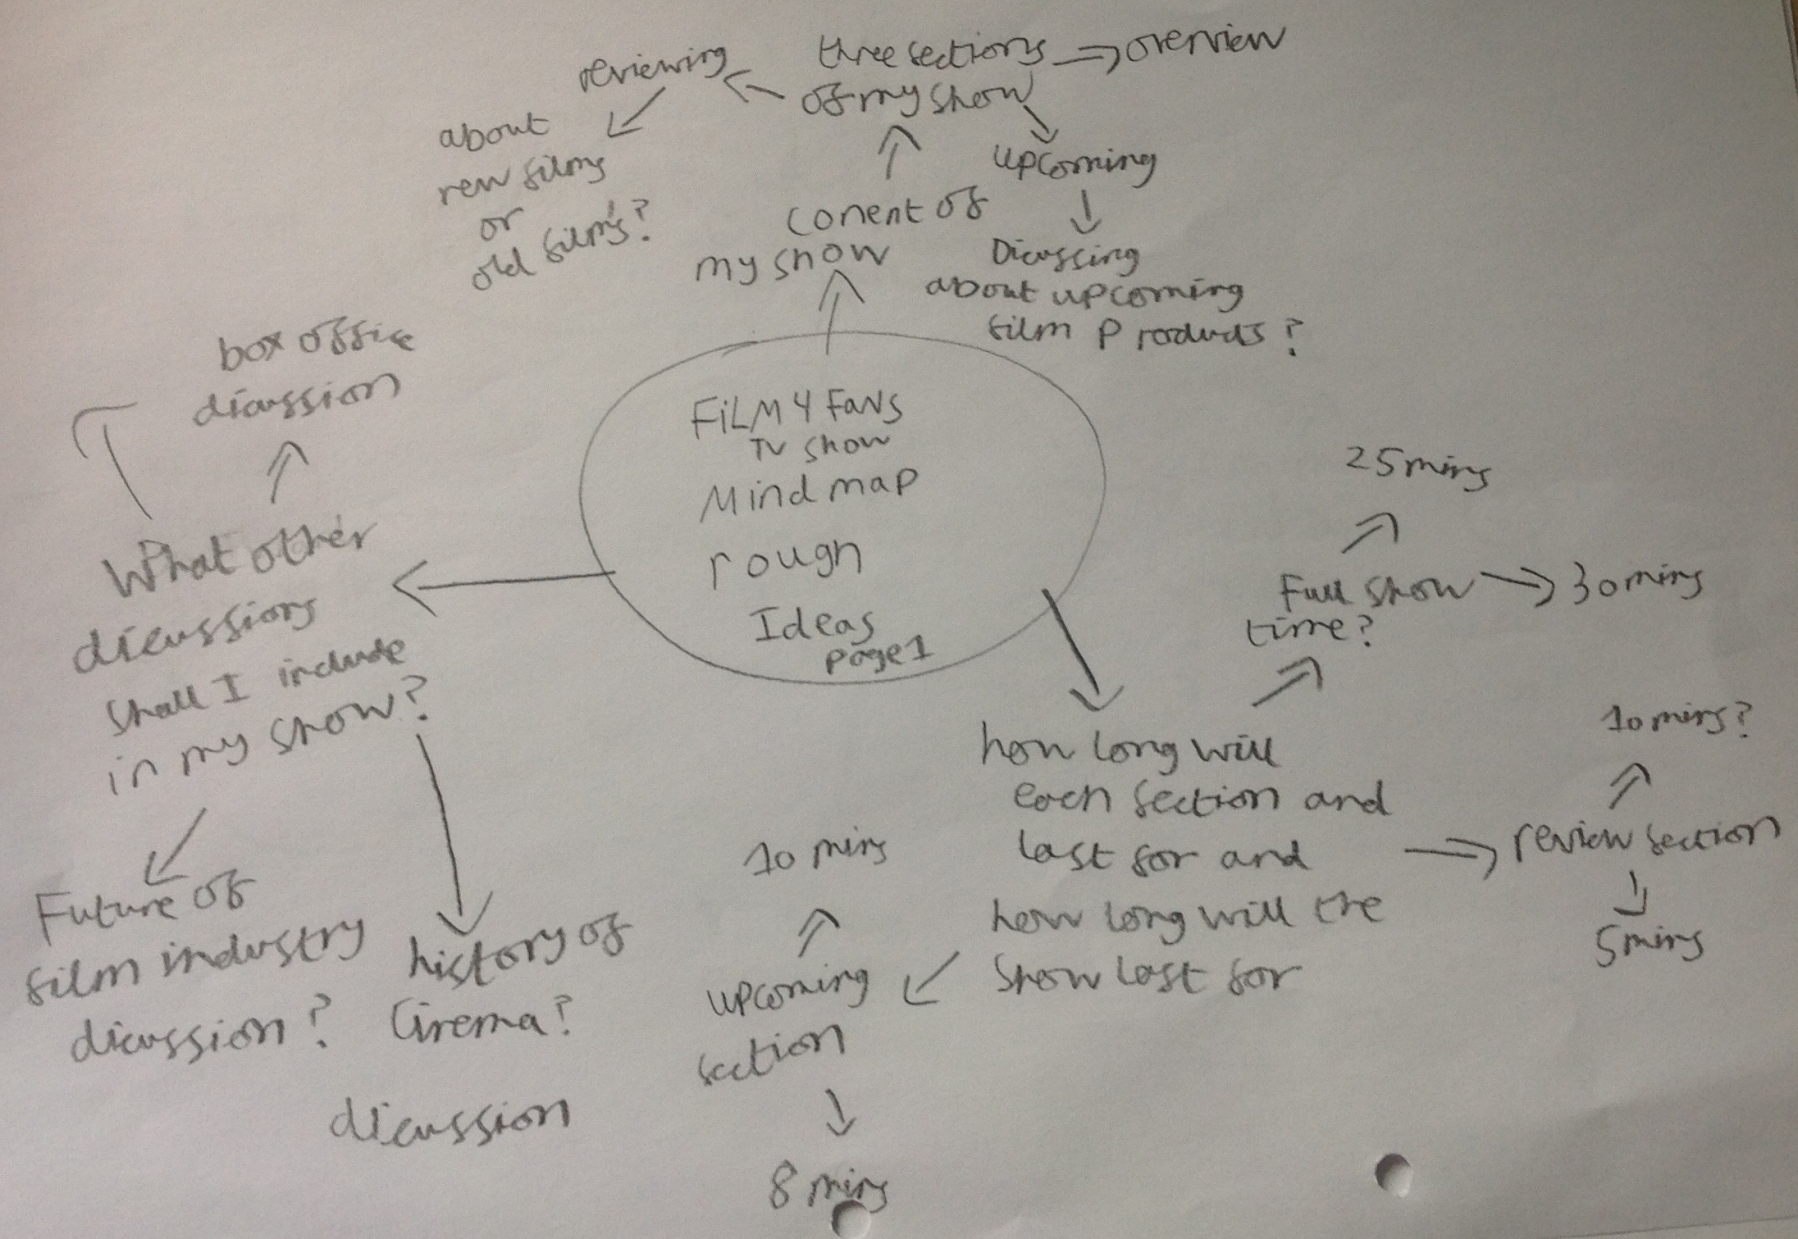 FiLM 4 Fans
TV show
Mind map
rough
Ideas
page 1
conent of
my show
three sections
of my show
overview
reviewing
about
new films
or
old film's?
upcoming
Dicussing
about upcoming
film Products?
What other
dicussions
shall I include
in my show?
box office
dicussion
Future of
film industry
dicussion?
history of
Cinema?
dicussion
how long will
each section and
last for and
how long will the
show last for
Full show
time?
25 mins
30 mins
review section
10 mins?
5 mins
upcoming
section
10 mins
8 mins